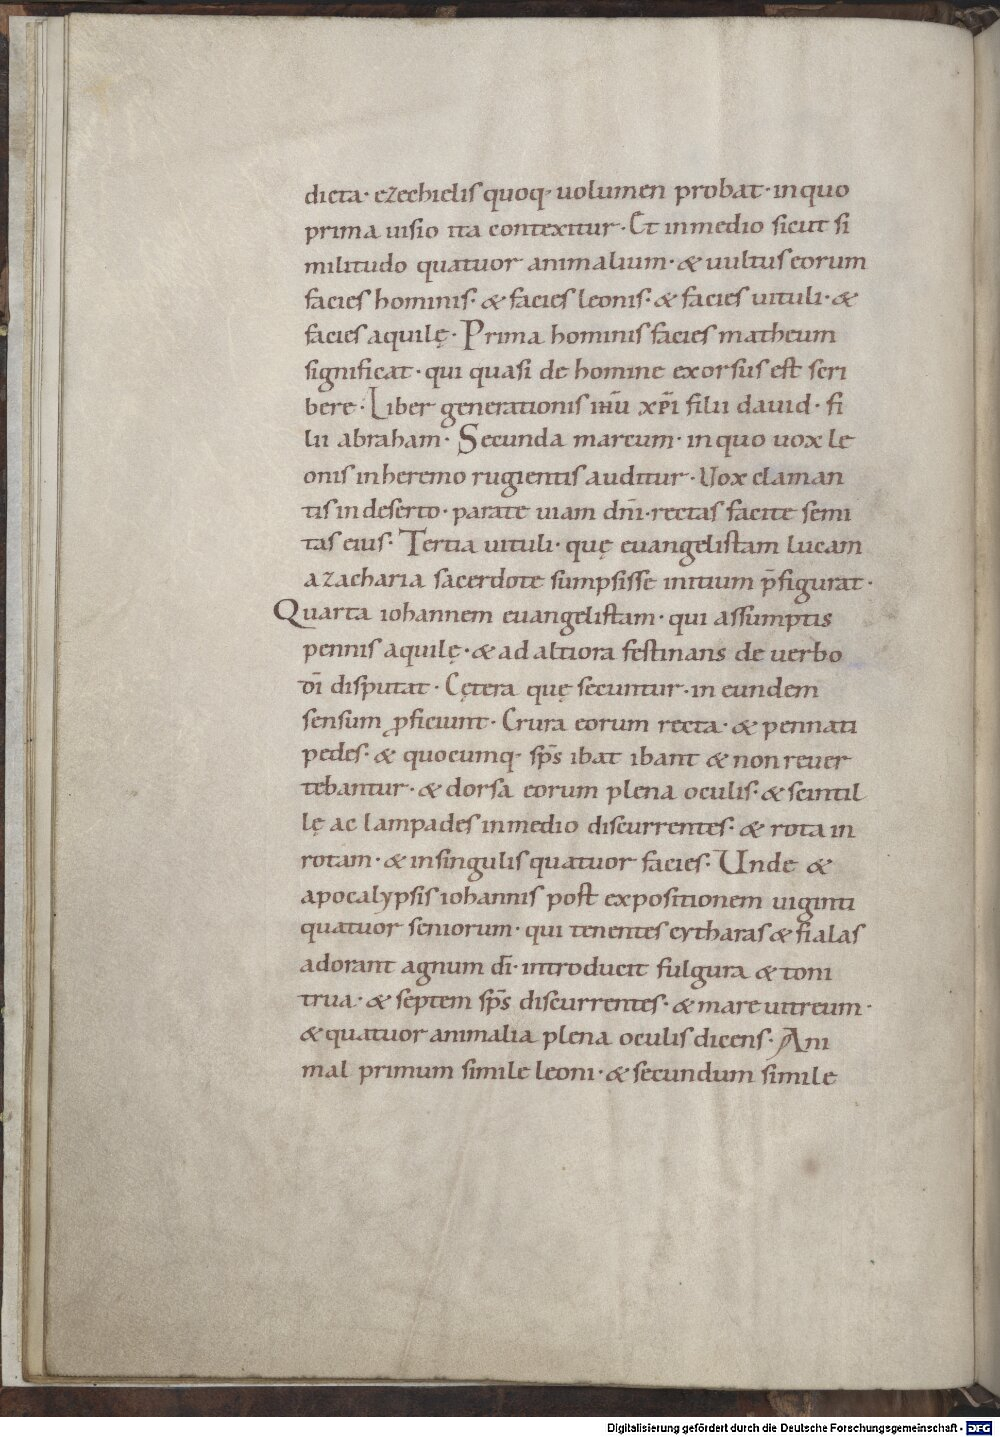 dicta· ezechielis quoq· uolumen probat· in quo
prima uisio ita contexitur· Et in medio sicut si
militudo quatuor animalium· & uultus eorum
facies hominis· & facies leonis· & facies uituli· &
facies aquilę· Prima hominis facies matheum
significat· qui quasi de homine exorsus est scri
bere· Liber generationis ihū xp̄i filii dauid· fi
lii abraham· Secunda marcum· in quo uox le
onis in heremo rugientis auditur· Uox claman
tis in deserto· parate uiam dn̄i· rectas facite semi
tas eius· Tertia uituli· quę euangelistam lucam
a zacharia sacerdote sumpsisse initium p̄figurat·
Quarta iohannem euangelistam· qui assumptis
pennis aquilę· & ad altiora festinans de uerbo
dī disputat· Cętera quę secuntur· in eundem
sensum ꝓficiunt· Crura eorum recta· & pennati
pedes· & quocumq· sp̄s ibat ibant & non reuer
tebantur· & dorsa eorum plena oculis· & scintil
lę ac lampades in medio discurrentes· & rota in
rotam· & in singulis quatuor facies· Unde &
apocalypsis iohannis post expositionem uiginti
quatuor seniorum· qui tenentes cytharas & fialas
adorant agnum dī· introducit fulgura & toni
trua· & septem sp̄s discurrentes· & mare uitreum·
& quatuor animalia plena oculis dicens· Ani
mal primum simile leoni· & secundum simile
Digitalisierung gefördert durch die Deutsche Forschungsgemeinschaft - DFG